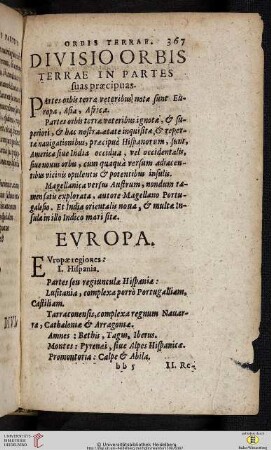 ORBIS TERRAE. 367
DIVISIO ORBIS
TERRAE IN PARTES
suas præcipuas.
Partes orbis terræ veteribus notæ sunt Eu-
ropa, Asia, Africa.
Partes orbis terræ veteribus ignotæ, & su-
periori, & hac nostra ætate inquisitæ & reper-
tæ navigationibus, præcipuè Hispanorum, sunt,
America siue India occidua, vel occidentalis,
siue nouus orbis, cum quaqua versum adiacen-
tibus vicinis opulentis & potentibus insulis.
Magellanica versus Austrum, nondum ta-
men satis explorata, autore Magellano Portu-
galesio. Et India orientalis noua, & multæ In-
sulæ in illo Indico mari sitæ.
EVROPA.
EVropæ regiones:
I. Hispania.
Partes seu regiunculæ Hispaniæ:
Lusitania, complexa porrò Portugalliam,
Castiliam.
Tarraconensis, complexa regnum Nauar-
ræ, Cathaloniæ & Arragoniæ.
Amnes: Bethis, Tagus, Iberus.
Montes: Pyrenei, siue Alpes Hispanicæ.
Promontoria: Calpe & Abila.
bb 5 II. Re-
© Universitätsbibliothek Heidelberg